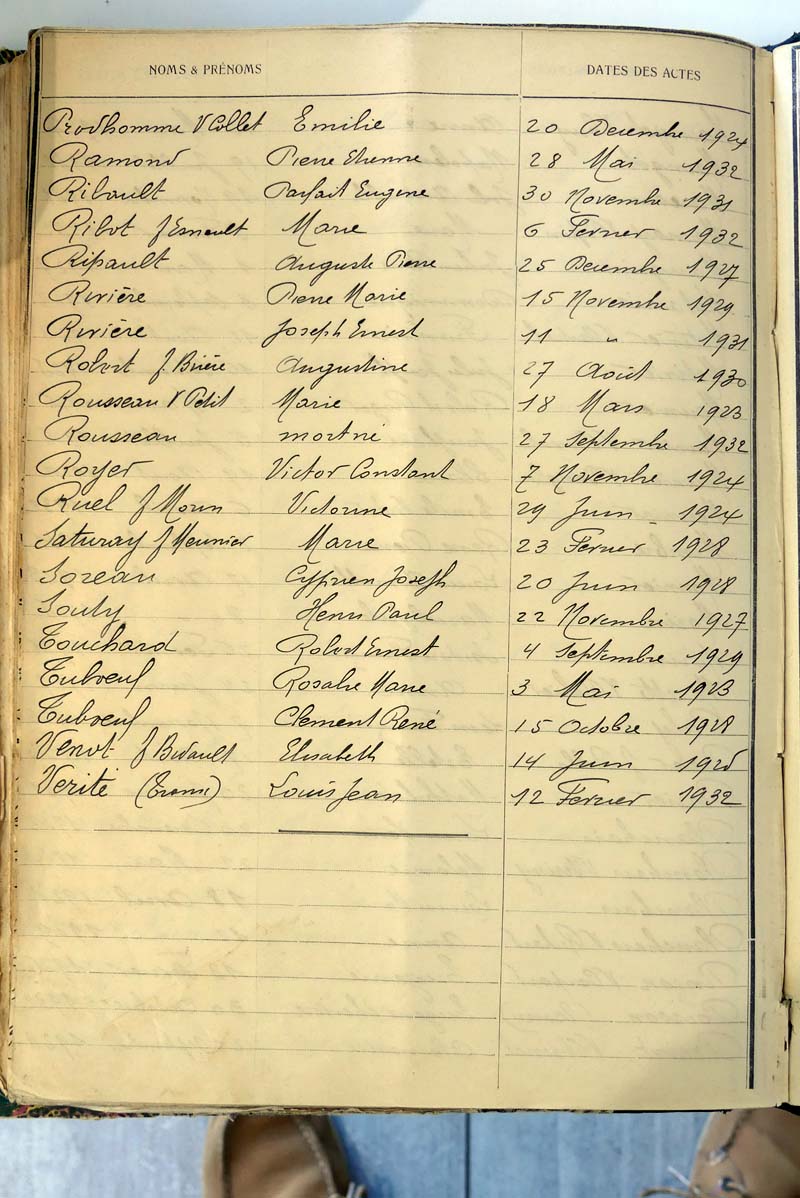 NOMS & PRÉNOMS DATES DES ACTES
Prodhomme V Collet Emilie 20 Decembre 1924
Ramond Pierre Etienne 28 Mai 1932
Ribault Parfait Eugene 30 Novembre 1931
Ribot f Esnault Marie 6 Fevrier 1932
Ripault Auguste Pierre 25 Decembre 1927
Rivière Pierre Marie 15 Novembre 1929
Rivière Joseph Ernest 11 " 1931
Robert f Brière Augustine 27 Août 1930
Rousseau V Petit Marie 18 Mars 1923
Rousseau mortné 27 Septembre 1932
Royer Victor Constant 7 Novembre 1924
Ruel f Morin Victorine 29 Juin 1924
Saturay f Meunier Marie 23 Fevrier 1928
Sozeau Cyprien Joseph 20 Juin 1928
Souty Henri Paul 22 Novembre 1927
Touchard Robert Ernest 4 Septembre 1929
Tuboeuf Rosalie Marie 3 Mai 1923
Tuboeuf Clement René 15 Octobre 1928
Venot f Bidault Elisabeth 14 Juin
Verité Louis Jean 12 Fevrier 1932